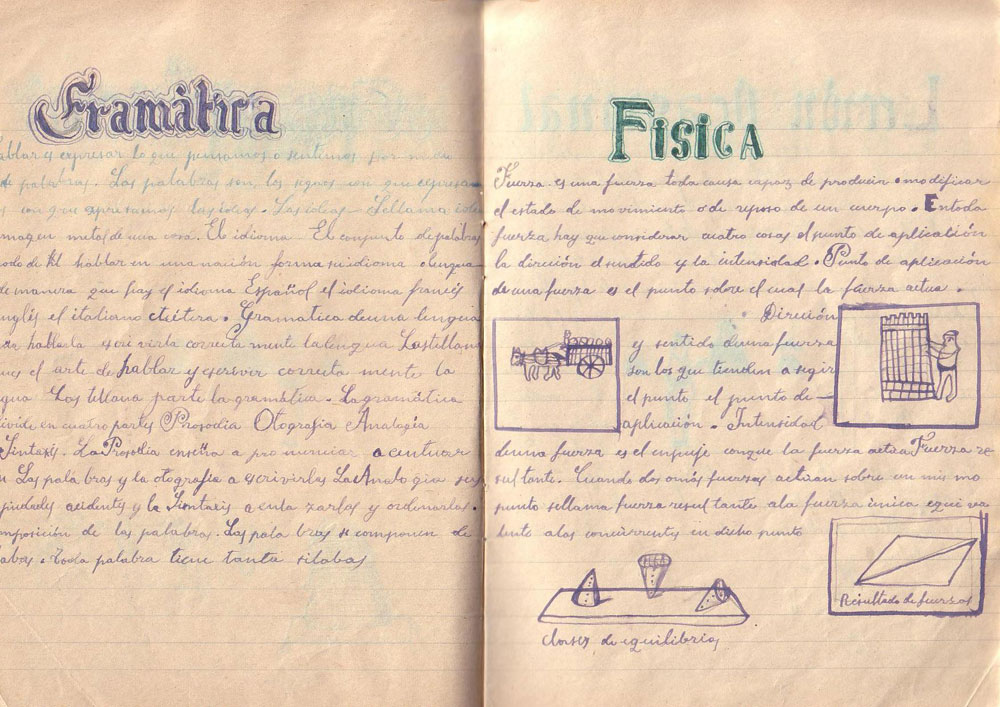 Gramática
ablar es expresar lo que pensamos o sentimos por medio
de palabras. Las palabras son, los signos con que expresam
s con que apresamos las ideas. Las ideas Sellama idea
imagen metal de una cosa. El idioma El conjunto de palabras
modo de hablar en una nación forma su idioma o lengua
de manera que hay el idioma Español el idioma francés
inglés el italiano etcétera. Gramatica de una lengua
habla la y scrivirla correcta mente la lengua Castellana
es el arte de hablar y escrivir correcta mente la
gua Castellana parte la gramática. La gramática
divide en cuatro partes Prosodia Otografia Analogia
Sintaxis. La Prosodia enseña a pronunciar acentuar
Las palabras y la otografia a escrivirlas La Analogia
acidentes y la Sintaxis a enlazarlas y ordenarlas.
omposición de las palabras. Las palabras se componen de
labas. Toda palabra tiene tanta silabas
Fisica
Fuerza es una fuerza toda causa capaz de producir o modificar
el estado de movimiento o de reposo de un cuerpo. En toda
fuerza, hay que considerar cuatro cosas el punto de aplicación
la direción el sentido y la intensidad. Punto de aplicación
de una fuerza es el punto sobre el cual la fuerza actua.
Direción
y sentido de una fuerza
son los que tienden a segir
el punto el punto de
aplicación. Intensidad
de una fuerza es el enpuje con que la fuerza actua Fuerza re
sultante. Cuando dos o más fuerzas actuan sobre un mismo
punto sellama fuerza resultante a la fuerza única equiva
lente a los concurrentes en dicho punto
Resultado de fuerzas
clases de equilibrios